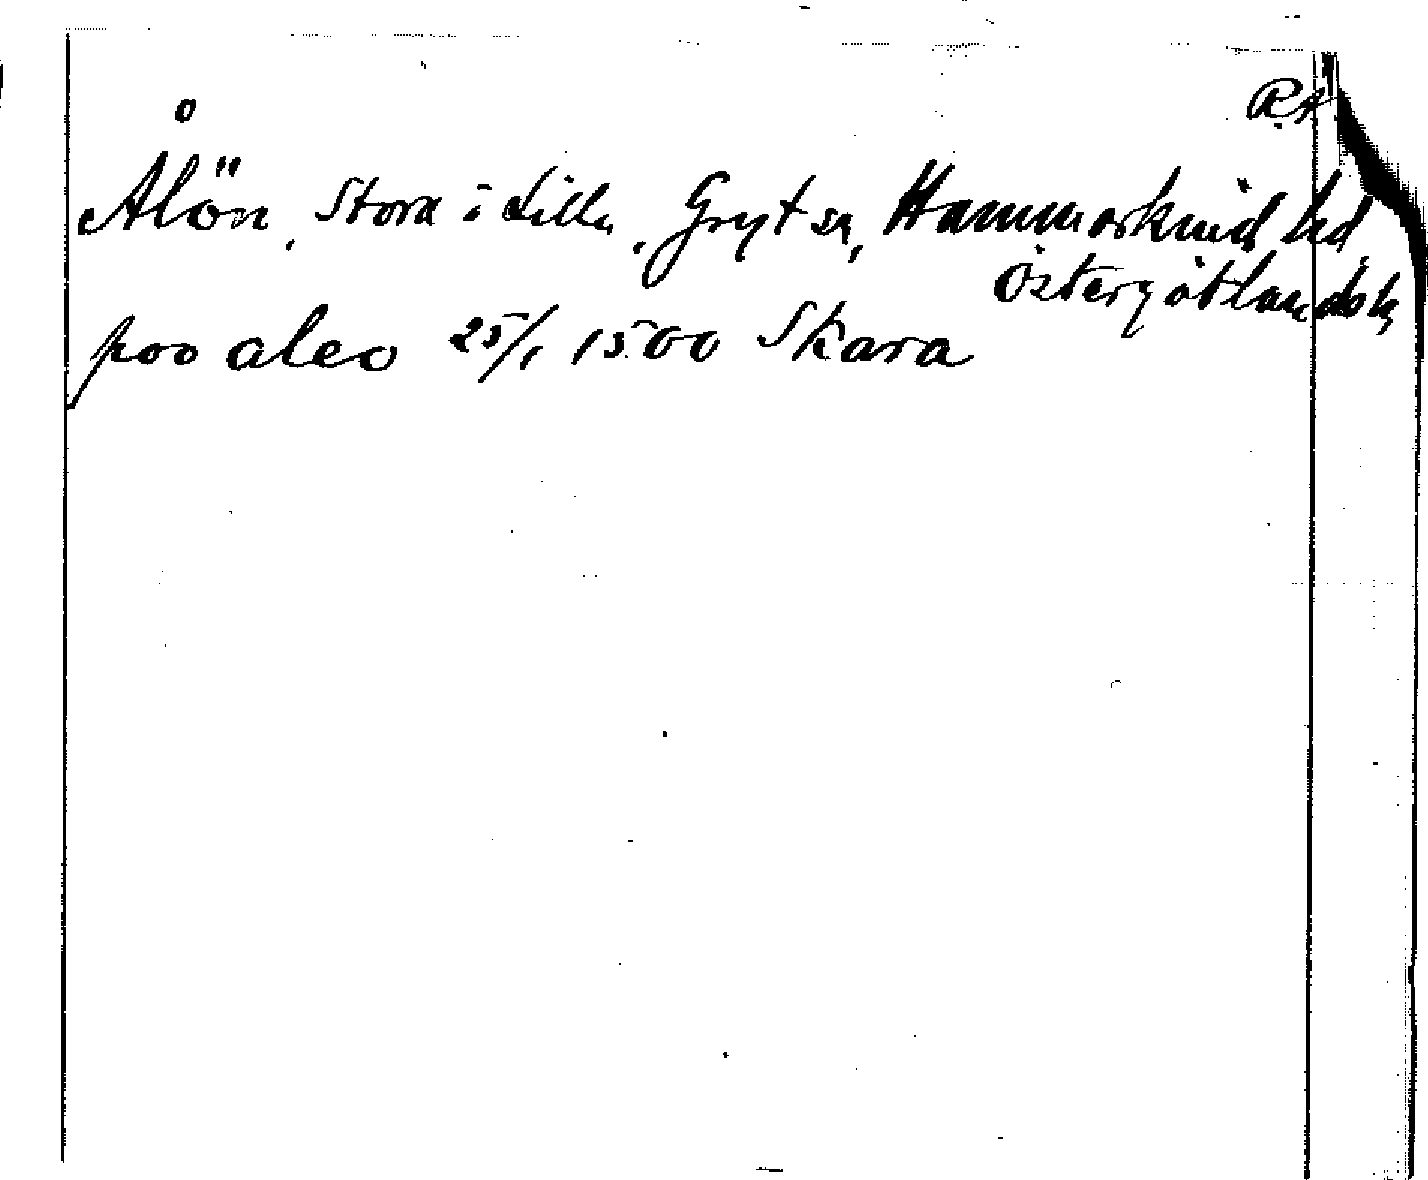 R.A
Ålön, Stora i Lilla, Gryt sn, Hammarkind hd,
Östergötlands l.
poo aleo 25/1 1500 Skara